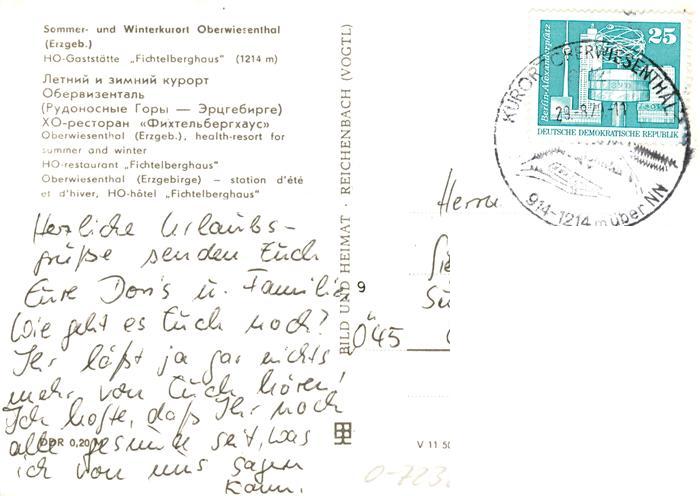 Sommer- und Winterkurort Oberwiesenthal
(Erzgeb.)
HO-Gaststätte „Fichtelberghaus" (1214 m)
Летний и зимний курорт
Обервизенталь
(Рудоносные Горы — Эрцгебирге)
ХО-ресторан «Фихтельбергхаус»
Oberwiesenthal (Erzgeb.), health-resort for
summer and winter
HO-restaurant „Fichtelberghaus"
Oberwiesenthal (Erzgebirge) – station d'été
et d'hiver, HO-hôtel „Fichtelberghaus"
Herzliche Urlaubs-
grüße senden Euch
Eure Doris u. Familie
Wie geht es Euch noch?
Ihr läßt ja gar nichts
mehr von Euch hören!
Ich hoffe, daß Ihr noch
alle gesund seit, was
ich von uns sagen
kann.
DDR 0,20 M
BILD UND HEIMAT · REICHENBACH (VOGTL)
9
V 11 50
Berlin-Alexanderplatz
25
DEUTSCHE DEMOKRATISCHE REPUBLIK
KURORT OBERWIESENTHAL
914-1214 m über NN
Herrn
045